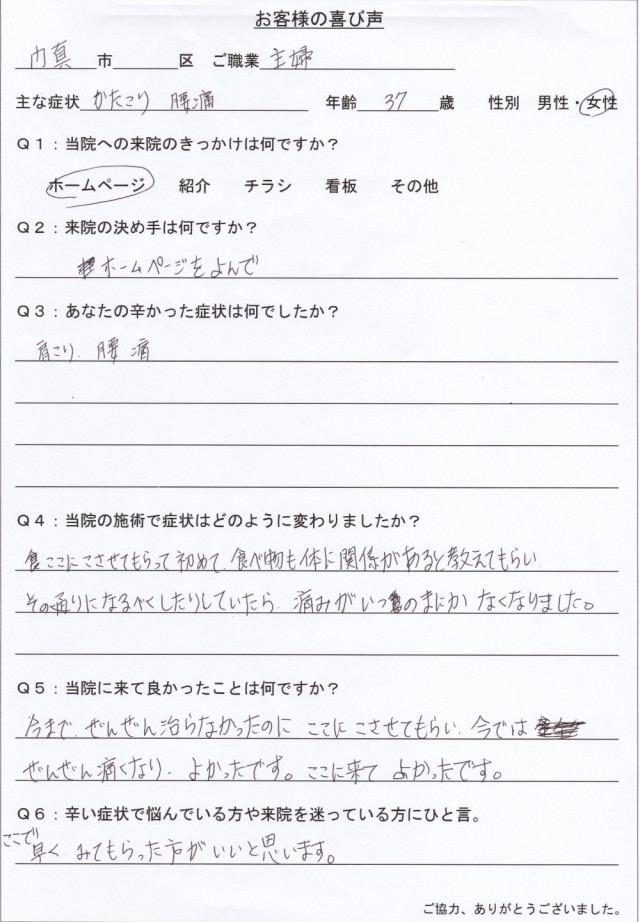 お客様の喜び声
門真市 区 ご職業 主婦
主な症状 かたこり 腰痛 年齢 37 歳 性別 男性・女性
Q1：当院への来院のきっかけは何ですか？
ホームページ 紹介 チラシ 看板 その他
Q2：来院の決め手は何ですか？
ホームページをよんで
Q3：あなたの辛かった症状は何でしたか？
肩こり、腰痛
Q4：当院の施術で症状はどのように変わりましたか？
ここにこさせてもらって初めて、食べ物も体に関係があると教えてもらい、
その通りになるべくしたりしていたら、痛みがいつのまにかなくなりました。
Q5：当院に来て良かったことは何ですか？
今まで、ぜんぜん治らなかったのに ここに こさせてもらい、今では
ぜんぜん痛くなり、よかったです。ここに来て よかったです。
Q6：辛い症状で悩んでいる方や来院を迷っている方にひと言。
ここで早く みてもらった方がいいと思います。
ご協力、ありがとうございました。